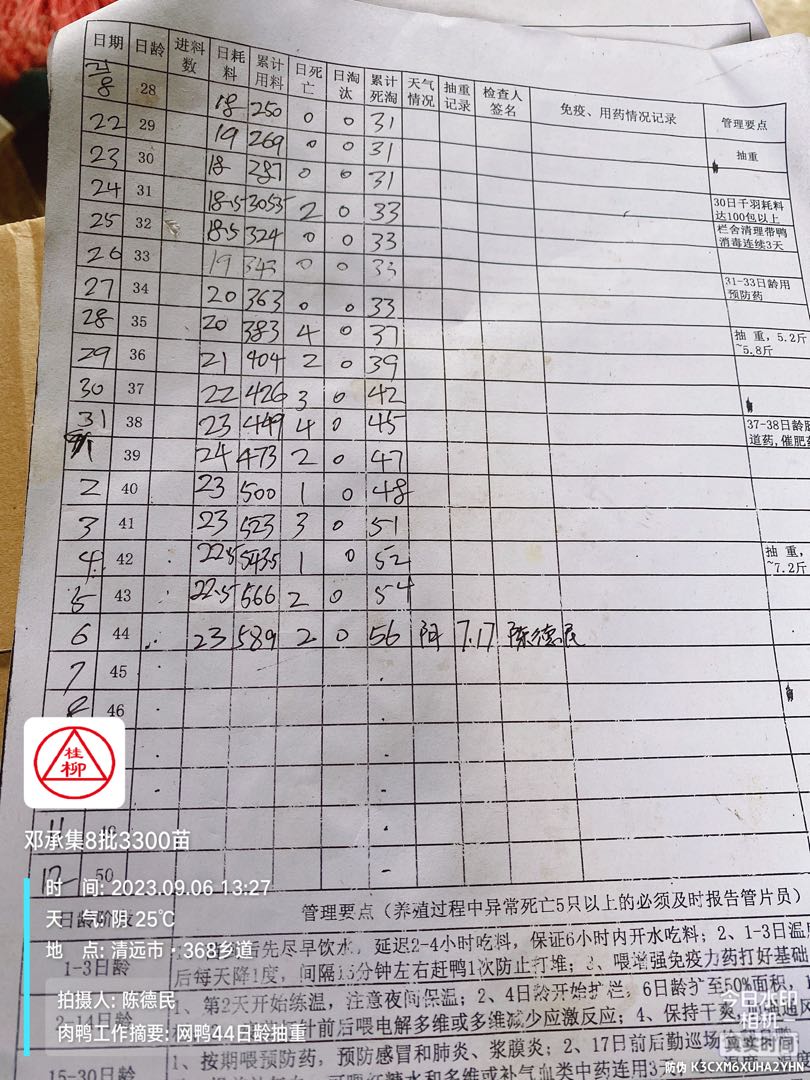 日期 日龄 进料数 日耗料 累计用料 日死亡 日淘汰 累计死淘 天气情况 抽重记录 检查人签名 免疫、用药情况记录 管理要点
21/8 28 18 250 0 0 31
22 29 19 269 0 0 31 抽重
23 30 18 287 0 0 31
24 31 18.5 305.5 2 0 33 30日千羽耗料达100包以上
25 32 18.5 324 0 0 33 栏舍清理带鸭消毒连续3天
26 33 19 343 0 0 33
27 34 20 363 0 0 33 31-33日龄用预防药
28 35 20 383 4 0 37
29 36 21 404 2 0 39 抽重,5.2斤~5.8斤
30 37 22 426 3 0 42
31 38 23 449 4 0 45 37-38日龄肠道药,催肥药
39 24 473 2 0 47
2 40 23 500 1 0 48
3 41 23 523 3 0 51
4 42 22.5 543.5 1 0 52 抽重,~7.2斤
5 43 22.5 566 2 0 54
6 44 23 589 2 0 56 阴 7.17 陈德民
7 45
8 46
11
12 50
桂柳
邓承集8批3300苗
时 间: 2023.09.06 13:27
天 气: 阴 25℃
地 点: 清远市·368乡道
拍摄人: 陈德民
肉鸭工作摘要: 网鸭44日龄抽重
日龄阶段 管理要点(养殖过程中异常死亡5只以上的必须及时报告管片员)
1-3日龄 先尽早饮水,延迟2-4小时吃料,保证6小时内开水吃料;2、1-3日温
后每天降1度,间隔15分钟左右赶鸭1次防止打堆;3、喂增强免疫力药打好基础
2-14日龄 1、第2天开始练温,注意夜间保温;2、4日龄开始扩栏,6日龄扩至50%面积,
针前后喂电解多维或多维减少应激反应;4、保持干爽,
15-30日龄 1、按期喂预防药,预防感冒和肺炎、浆膜炎;2、17日前后勤巡场
今日水印
相机
真实时间
防伪 K3CXM6XUHA2YHN